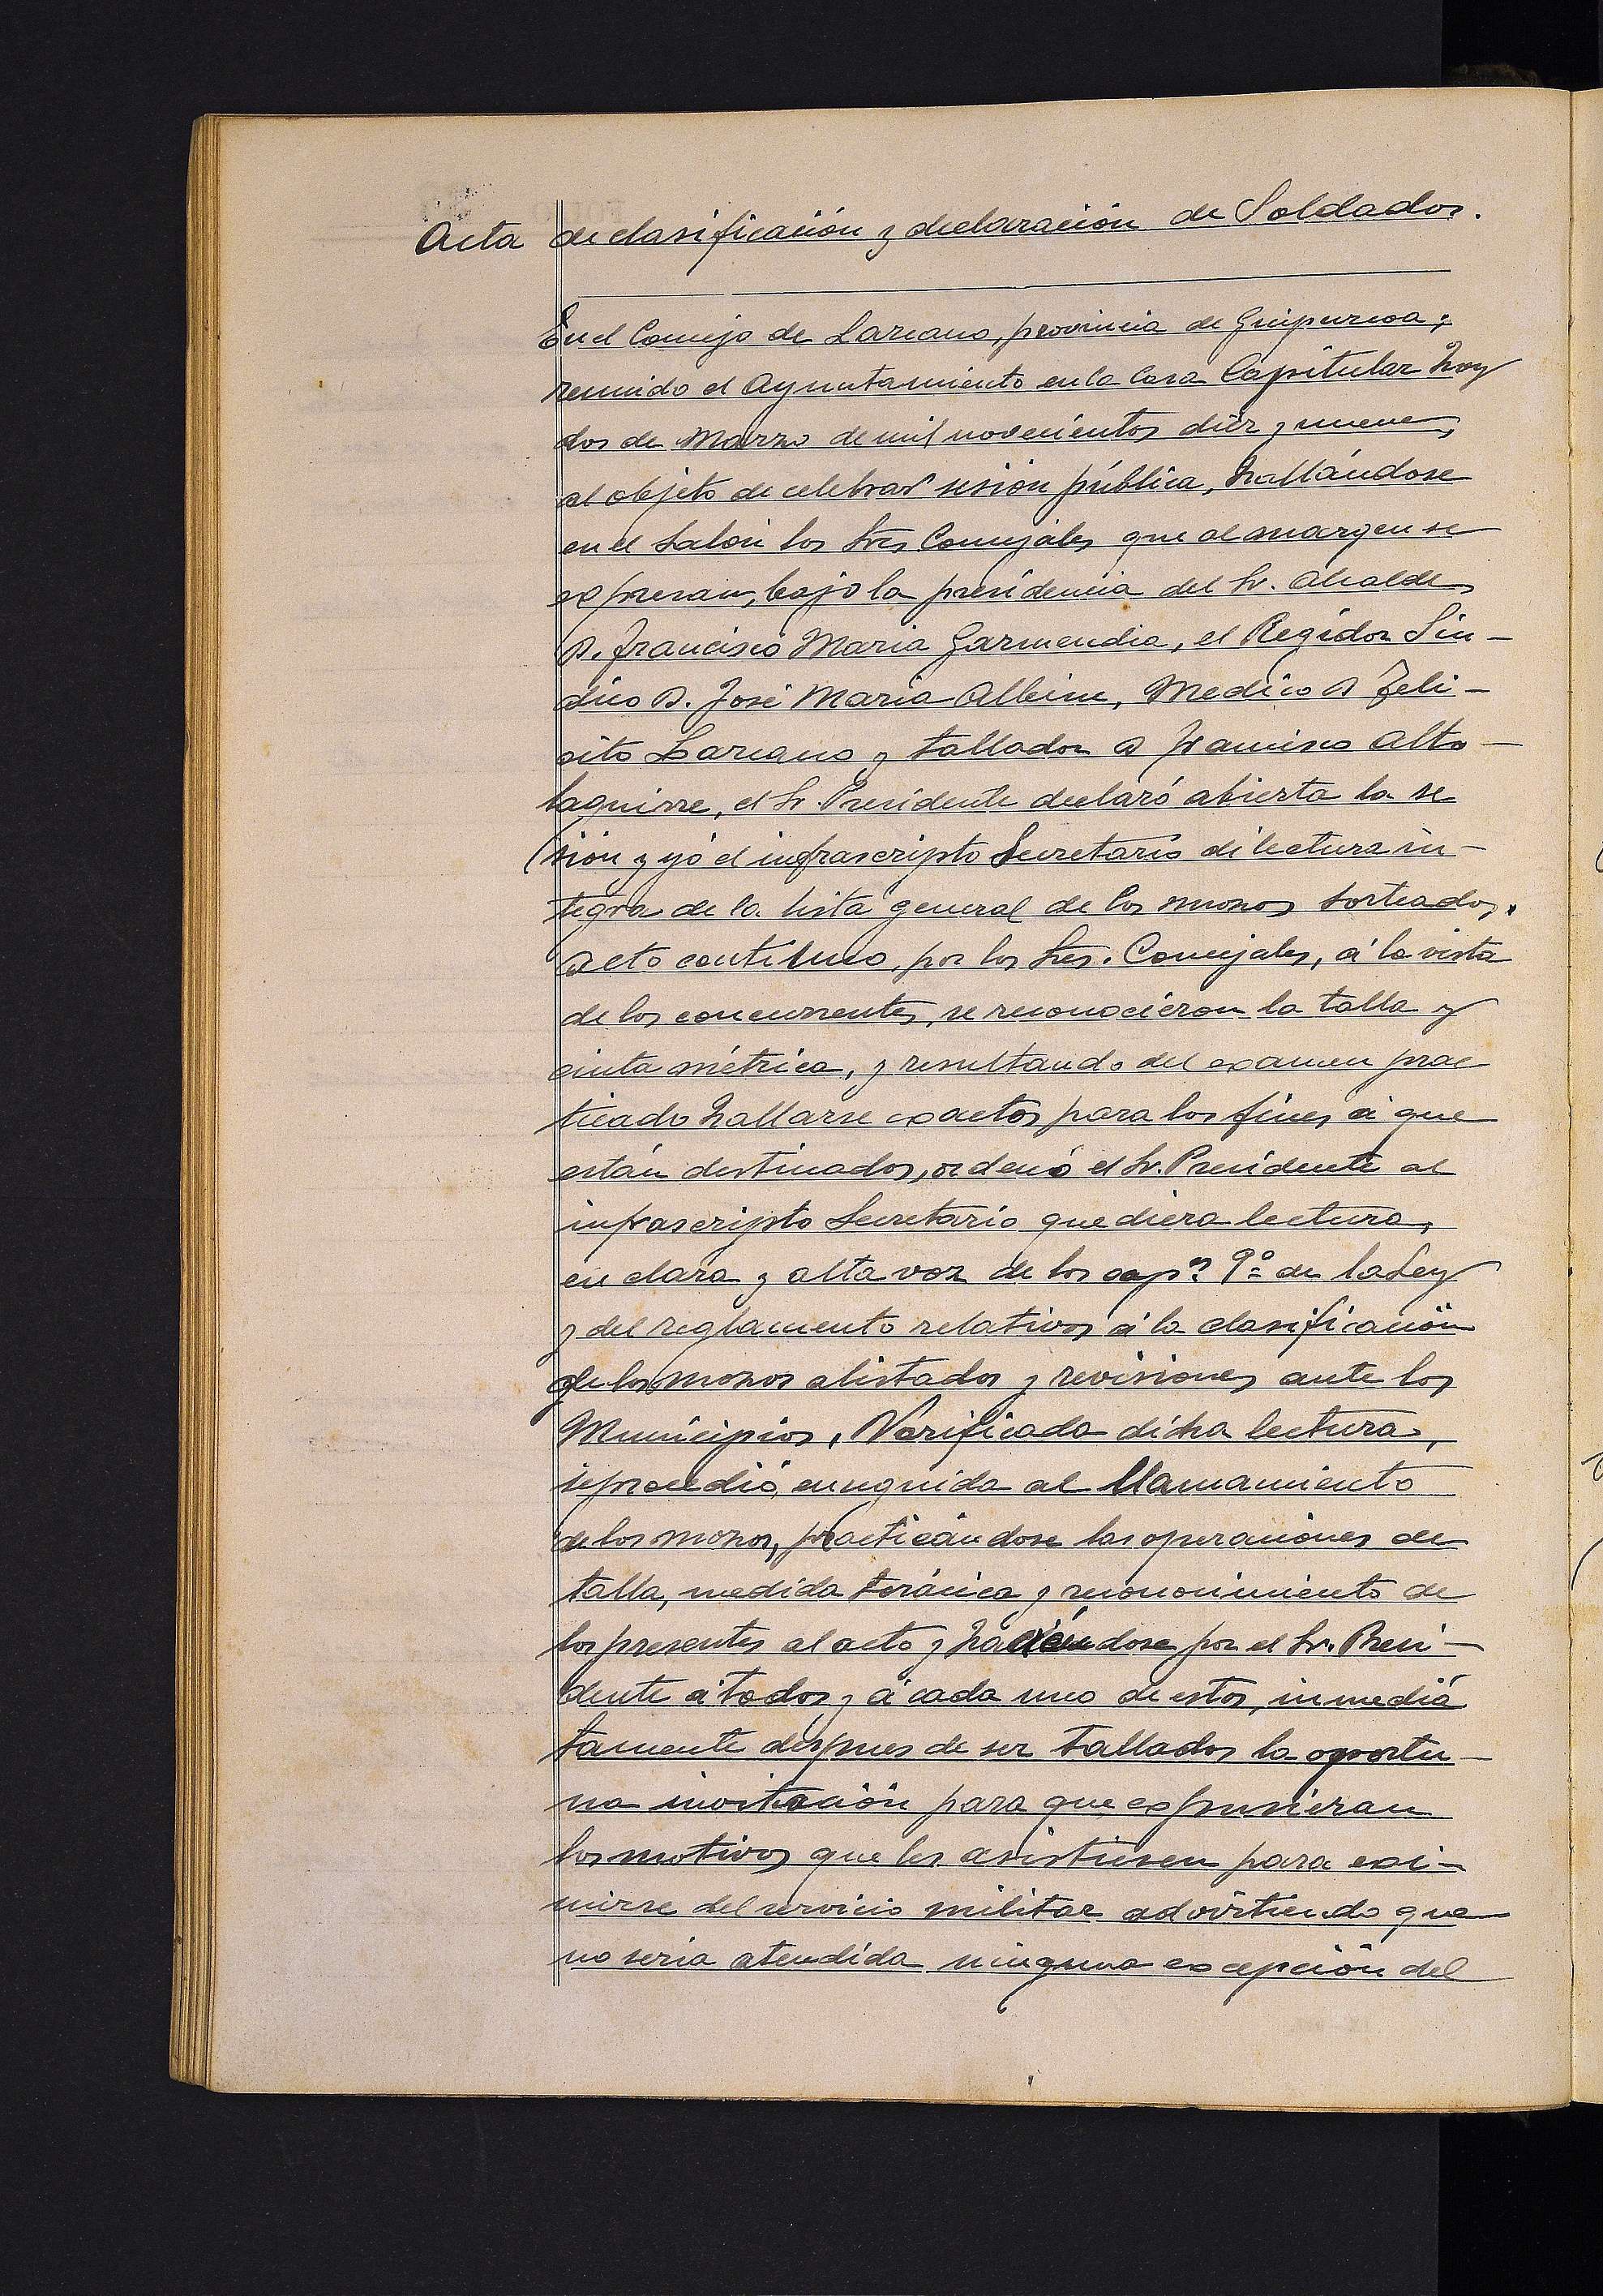 Acta de clasificación y declaración de Soldados.
En el Concejo de Lazcano, provincia de Guipuzcoa;
reunido el Ayuntamiento en la Casa Capitular hoy
dos de Marzo de mil novecientos diez y nueve,
al objeto de celebrar sesión pública, hallándose
en el Salón los Sres Concejales que al margen se
expresan, bajo la presidencia del Sr. Alcalde
D. Francisco Maria Garmendia, el Regidor Sin-
dico D. José Maria Albisu, Medico D Feli-
cito Lazcano y tallador D Francisco Alto-
laguirre, el Sr. Presidente declaró abierta la se
sión y yó el infrascripto Secretario di lectura in-
tegra de la lista general de los mozos sorteados.
Acto contínuo, por los Sres. Concejales, á la vista
de los concurrentes, se reconocieron la talla y
cinta métrica, y resultando del examen prac
ticado hallarse exactos para los fines á que
están destinados, ordenó el Sr. Presidente al
infrascripto Secretario que diera lectura,
en clara y alta voz de los capº 9º de la Ley
y del reglamento relativos á la clasificación
de los mozos alistados y revisiones ante los
Municipios. Verificada dicha lectura,
se procedió enseguida al llamamiento
de los mozos, practicándose las operaciones de
talla, medida toráxica y reconocimiento de
los presentes al acto y haciéndose por el Sr. Presi-
dente á todos y á cada uno de estos, inmediá
tamente despues de ser tallados la oportu-
na invitación para que expusieran
los motivos que les asistiesen para exi-
mirse del servicio militar advirtiendo que
no seria atendida ninguna excepción del